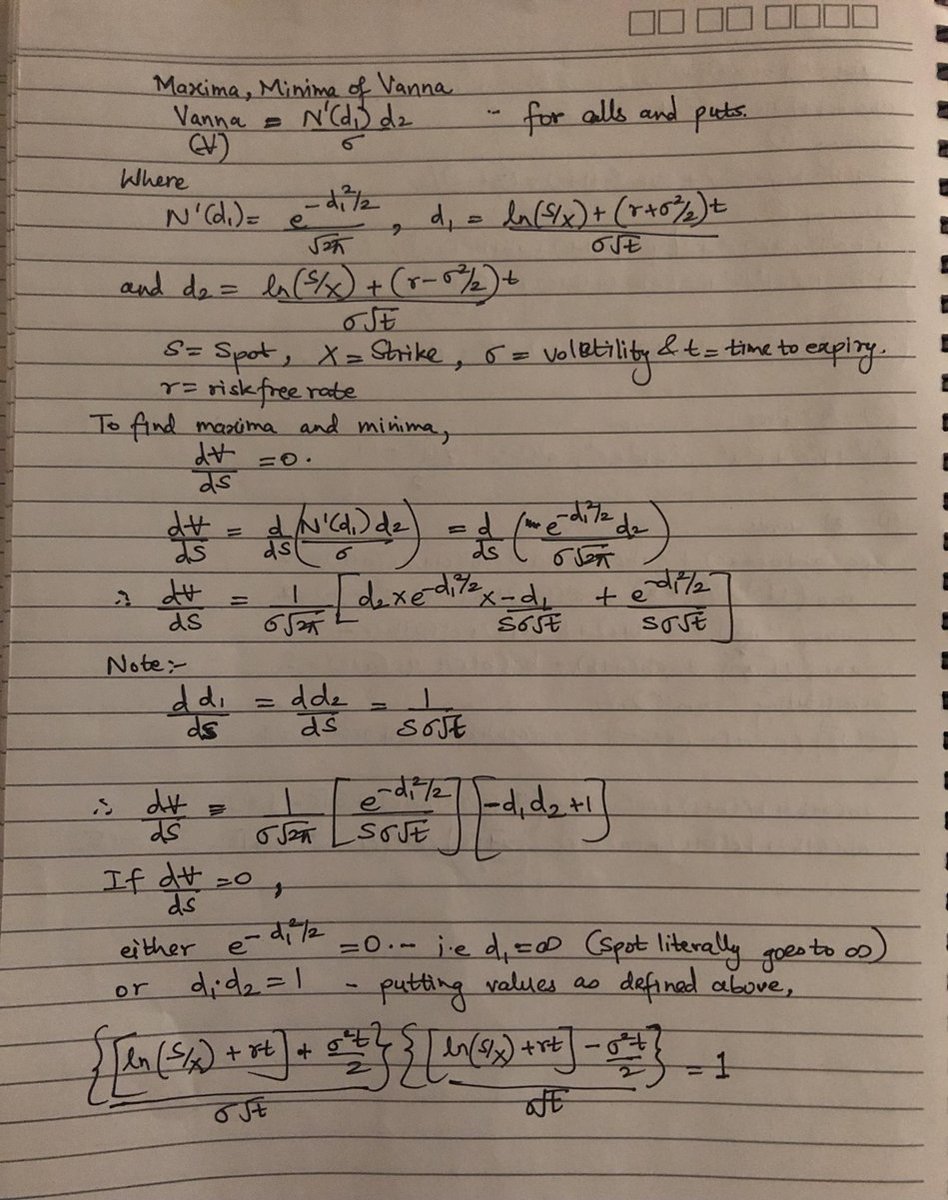 Maxima, Minima of Vanna
Vanna = N'(d₁) d₂ / σ -- for calls and puts.
(V)
Where
N'(d₁) = e^(-d₁²/2) / √2π , d₁ = ln(S/X) + (r+σ²/2)t / σ√t
and d₂ = ln(S/X) + (r-σ²/2)t / σ√t
S = Spot, X = Strike, σ = volatility & t = time to expiry.
r = risk free rate
To find maxima and minima,
dV/dS = 0.
dV/dS = d/dS (N'(d₁) d₂ / σ) = d/dS (e^(-d₁²/2) d₂ / σ√2π)
∴ dV/dS = 1/σ√2π [d₂ x e^(-d₁²/2) x -d₁/Sσ√t + e^(-d₁²/2)/Sσ√t]
Note:-
d d₁/dS = d d₂/dS = 1/Sσ√t
∴ dV/dS = 1/σ√2π [e^(-d₁²/2)/Sσ√t] [-d₁d₂+1]
If dV/dS = 0,
either e^(-d₁²/2) = 0.- i.e d₁ = ∞ (Spot literally goes to ∞)
or d₁.d₂ = 1 - putting values as defined above,
{[ln(S/X) + rt] + σ²t/2}/σ√t {[ln(S/X) + rt] - σ²t/2}/σ√t = 1